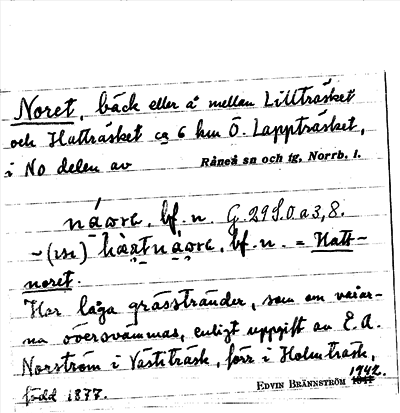 Noret, bäck eller å mellan Lillträsket
och Hatträsket ca 6 km Ö. Lappträsket,
i No delen av Råneå sn och tg, Norrb. l.
bf. n. G. 29 S. 0 a 3, 8.
bf. n. = Hatt-
noret.
Har låga grässtränder, som om vårar-
na översvämmas, enligt uppgift av E. A.
Norström i Västiträsk, förr i Holmträsk,
född 1877.
EDVIN BRÄNNSTRÖM 1942.